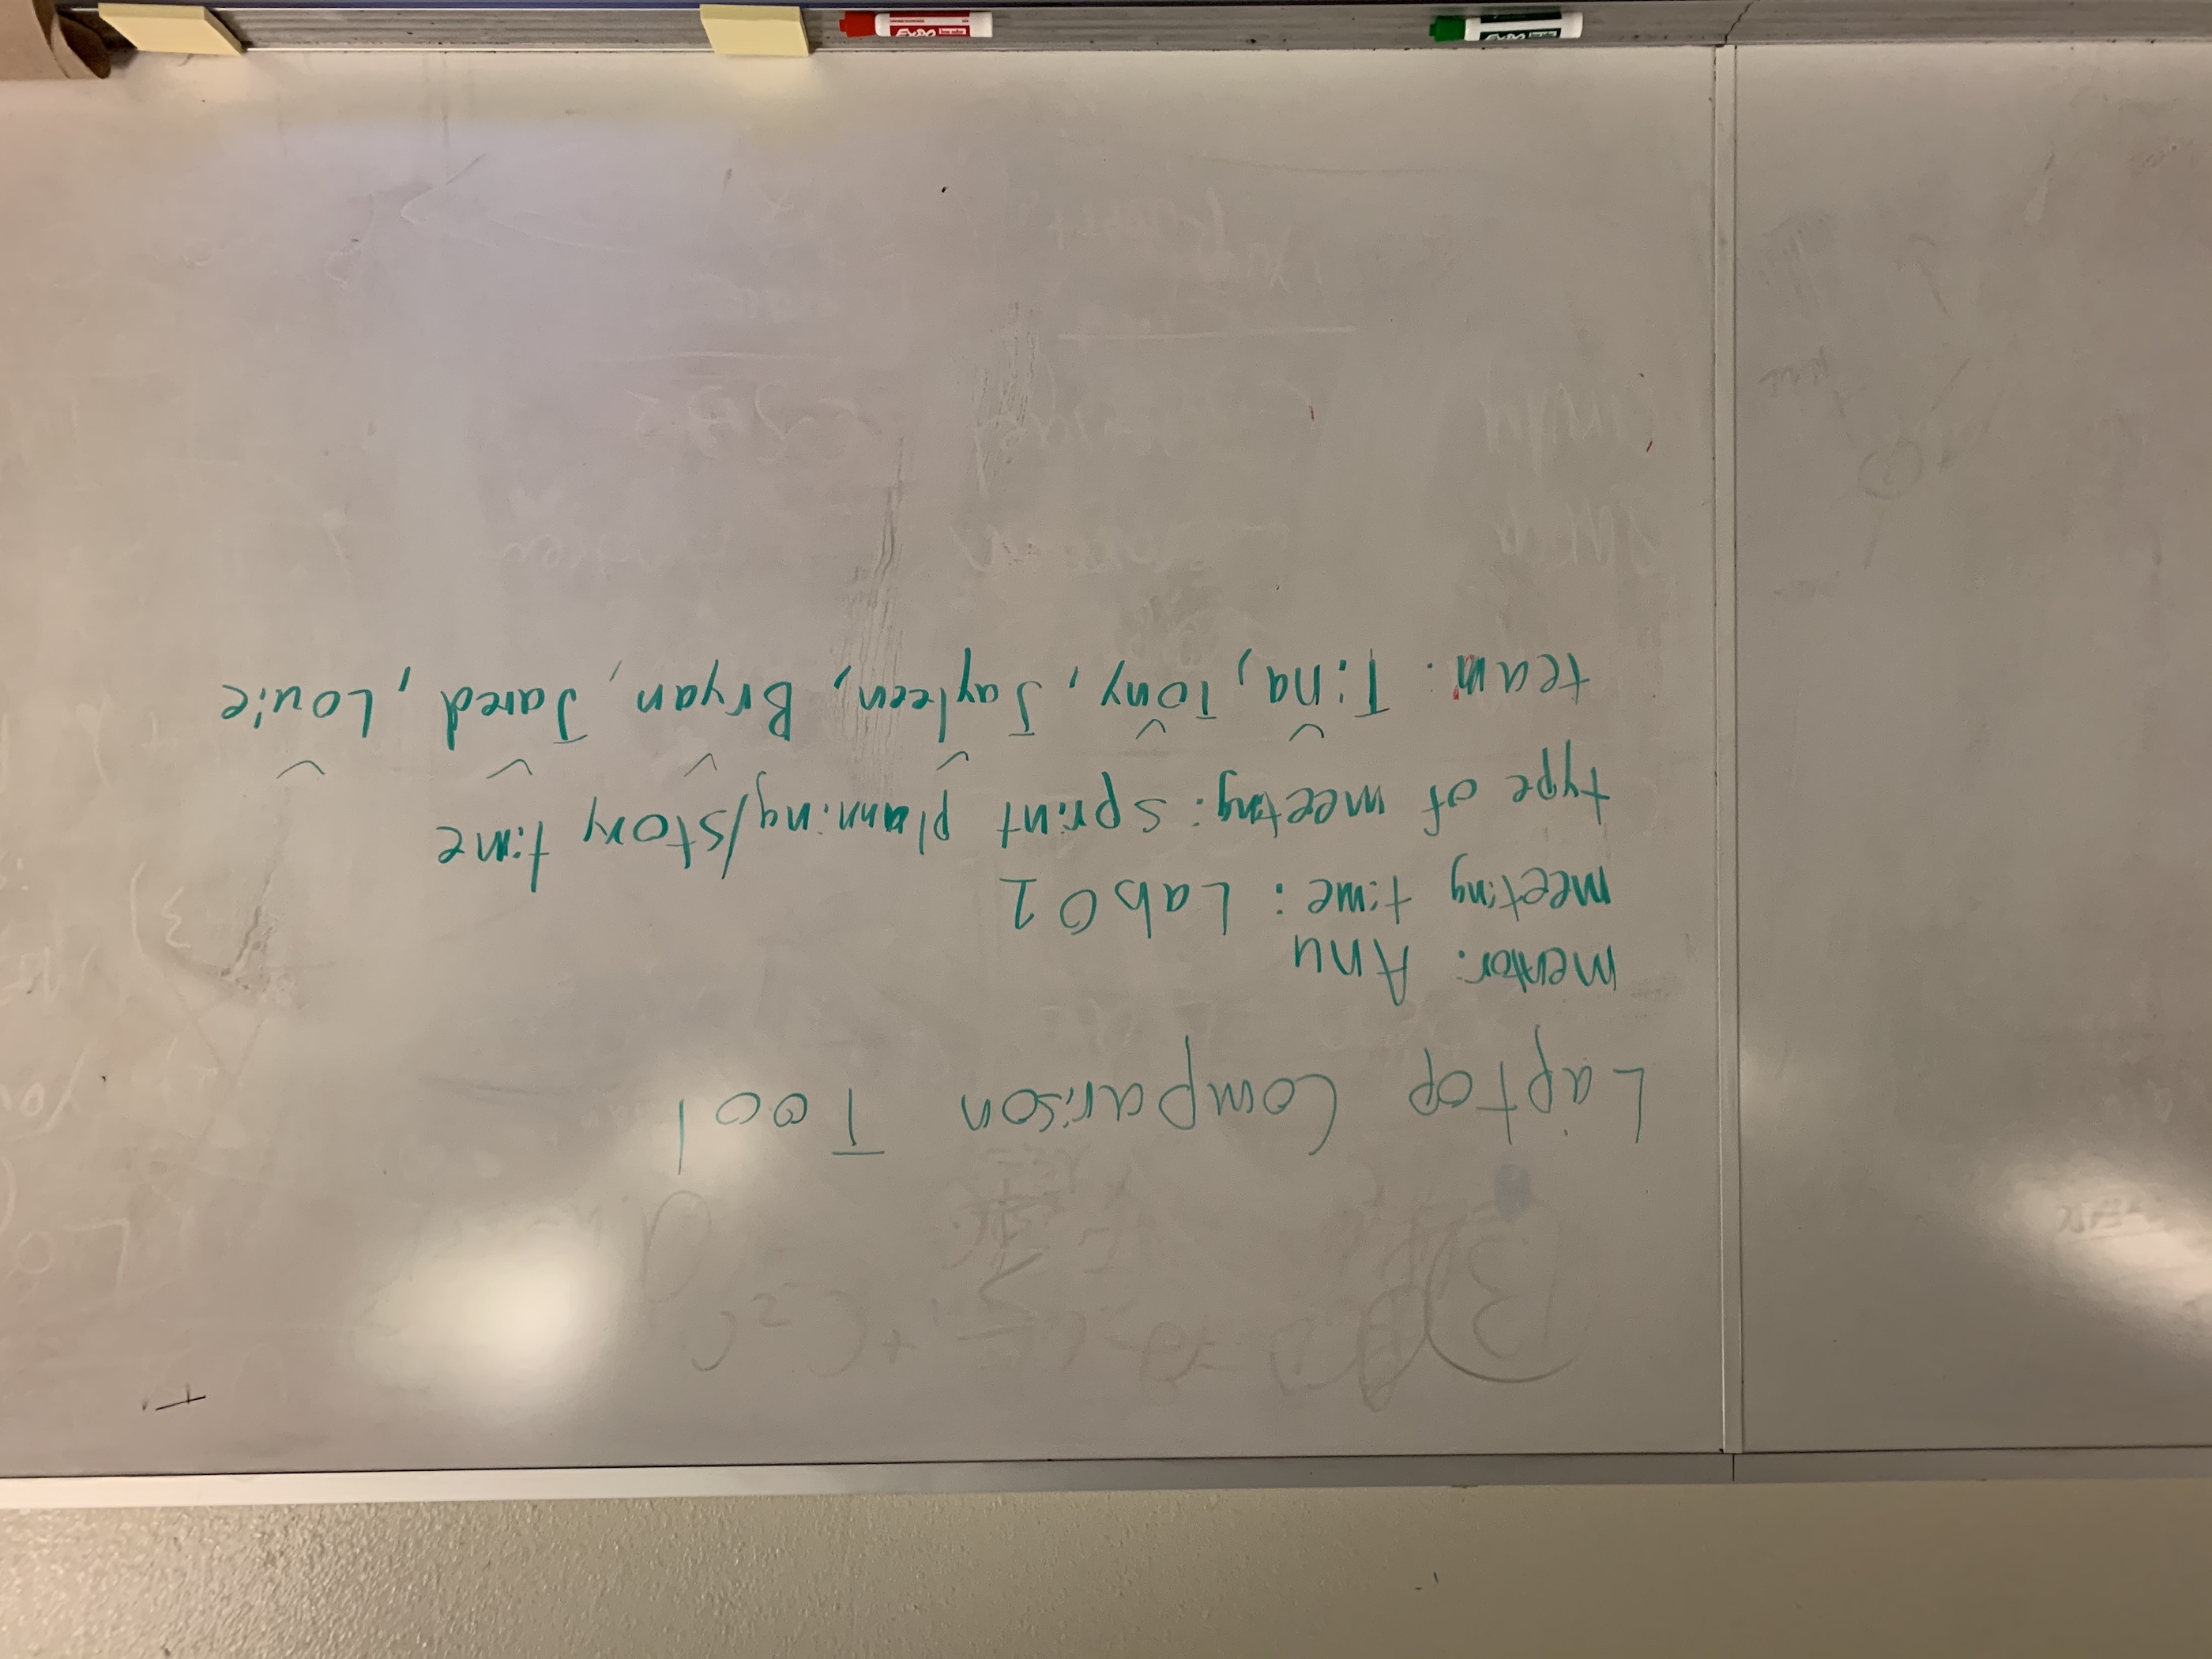 Laptop Comparison Tool
mentor: Anu
meeting time: Lab 01
type of meeting: sprint planning/story time
team: Tina, Tony, Jayleen, Bryan, Jared, Louie
EXPO
EXPO